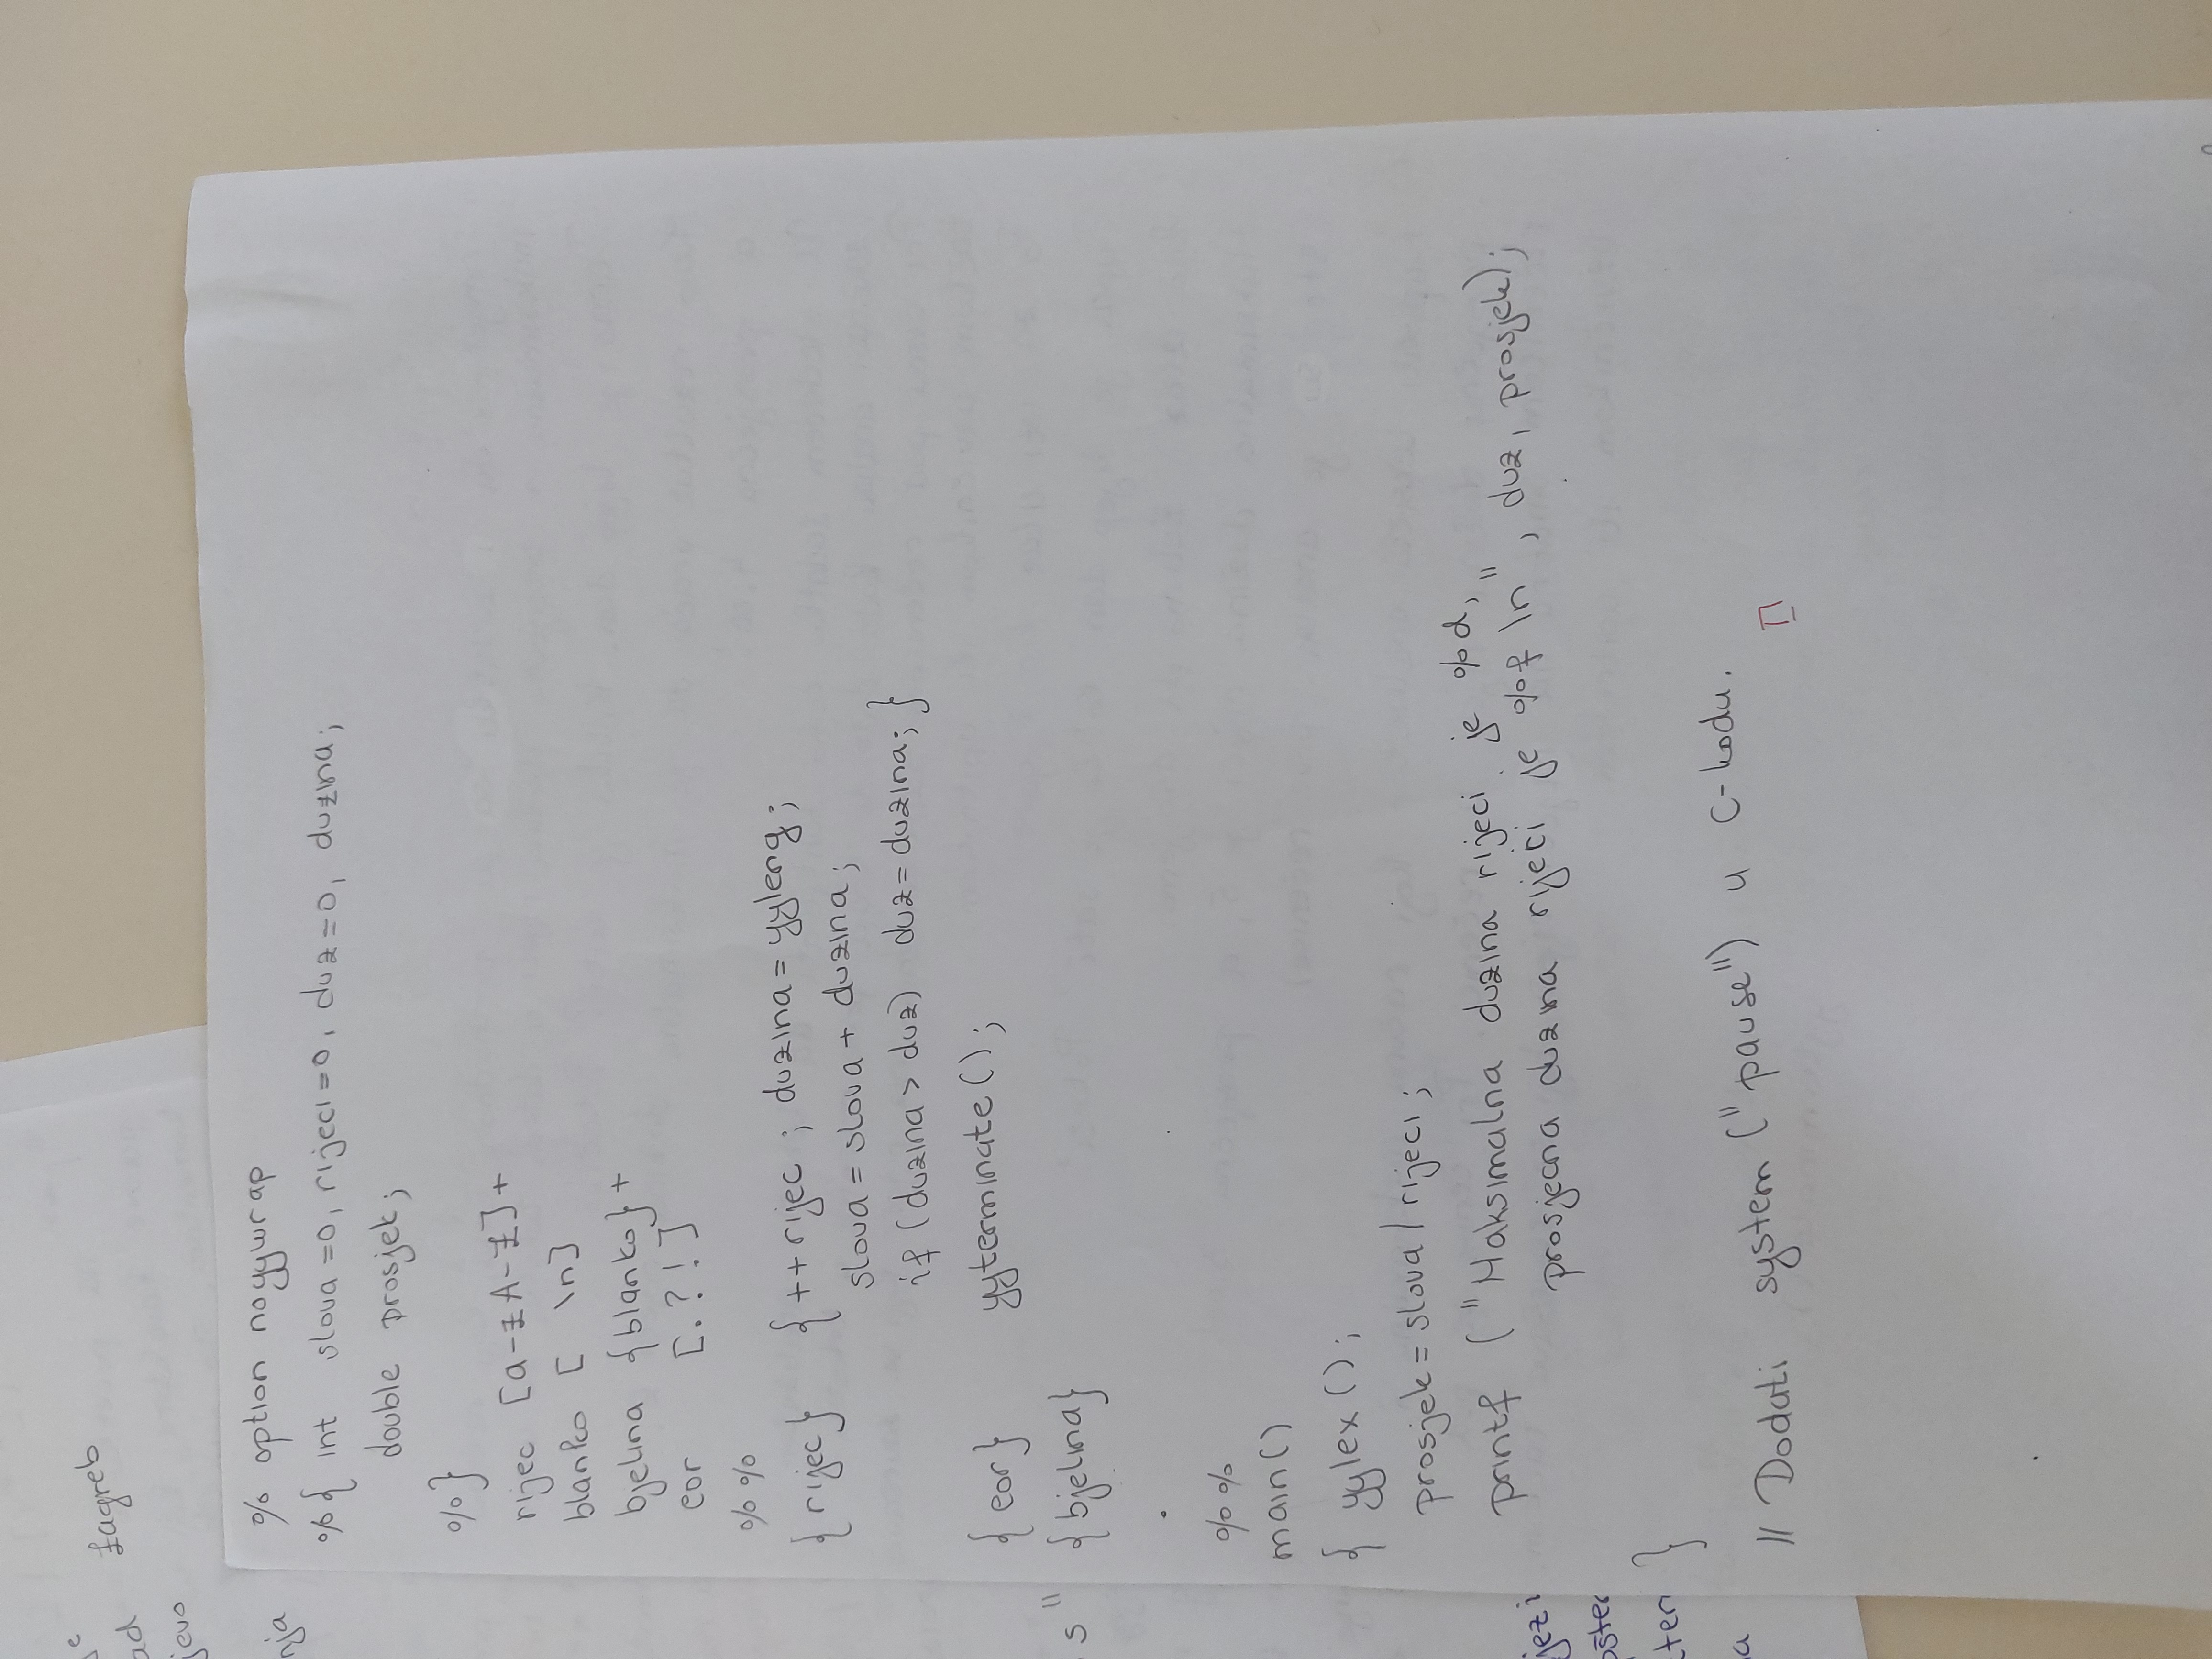 Zagreb
ad
jevo
nja
% option noyywrap
%{ int slova =0, rijeci=0, duz=0, duzina;
double prosjek;
%}
rijec [a-zA-Z]+
blanko [ \n]
bjelina {blanko}+
eor [.?!]
%%
{rijec} {++rijec ; duzina = yyleng;
slova = slova + duzina;
if (duzina > duz) duz = duzina; }
{eor} yyterminate();
s" {bjelina}
.
%%
main()
{ yylex();
prosjek = slova / rijeci;
printf ("Maksimalna duzina rijeci je %d,
prosjecna duzina rijeci je %f \n", duz, prosjek);
jezi
}
// Dodati system ("pause") u C-kodu.